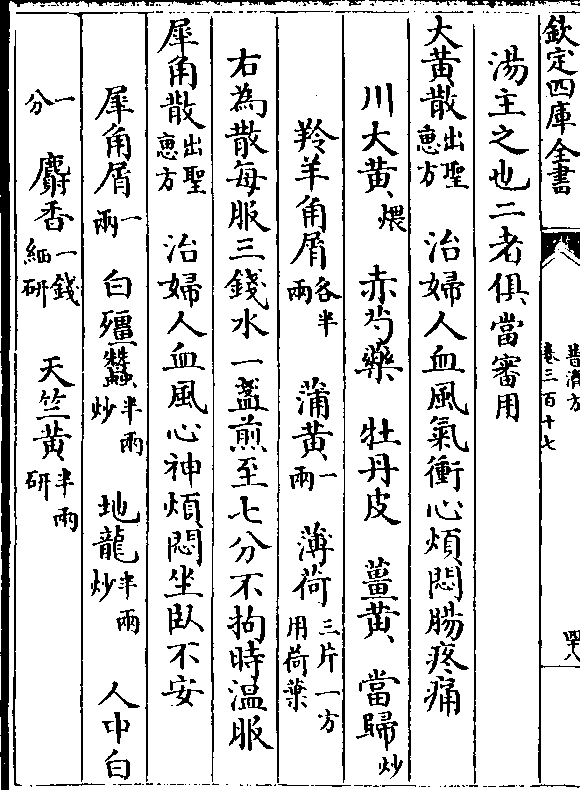 欽定四庫全書
普濟方
卷三百十七
四十八
湯主之也二者俱當審用
大黄散出聖惠方 治婦人血風氣衝心煩悶腸疼痛
川大黄煨 赤芍藥 牡丹皮 薑黄 當歸炒
羚羊角屑各半兩 蒲黄一兩 薄荷三片一方用荷葉
右為散每服三錢水一盞煎至七分不拘時温服
犀角散出聖惠方 治婦人血風心神煩悶坐臥不安
犀角屑一兩 白殭蠶半兩炒 地龍半兩炒 人中白
一分 麝香一錢細研 天竺黄半兩研